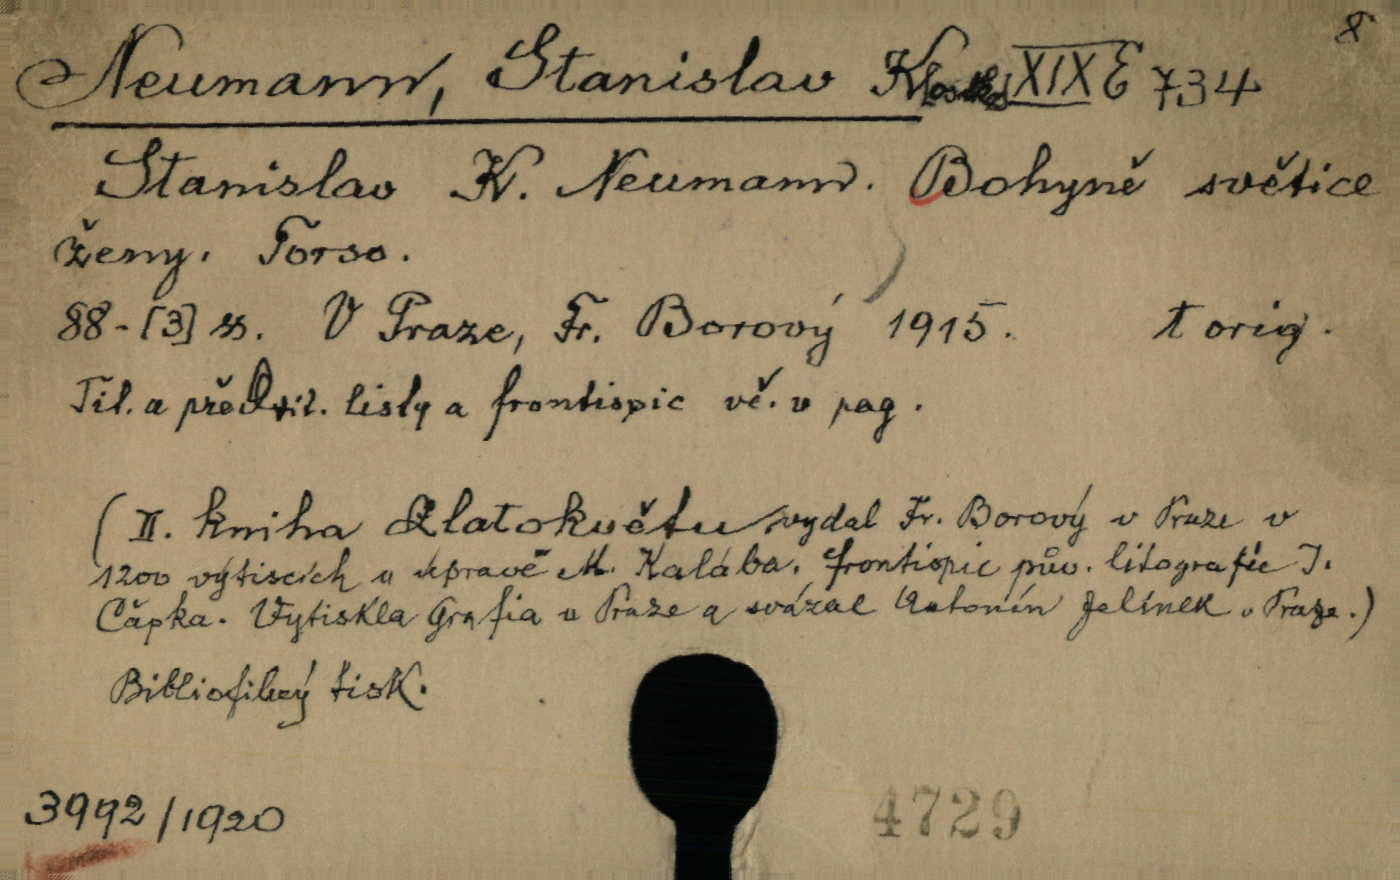 8
Neumann, Stanislav Kostka XIX E 734
Stanislav K. Neumann. Bohyně světice
ženy. Torso.
88-[3] s. V Praze, Fr. Borový 1915. t orig.
Tit. a předtit. listy a frontispic vč. v pag.
(II. kniha Zlatokvětu vydal Fr. Borový v Praze v
1200 výtiscích v úpravě M. Kalába. frontispic pův. litografie J.
Čapka. Vytiskla Grafia v Praze a svázal Antonín Jelínek v Praze.)
Bibliofilský tisk.
3992/1920
4729